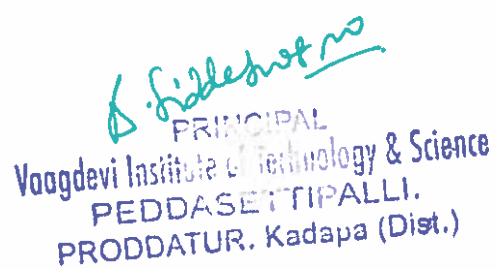 B. Siddeswar
PRINCIPAL
Vaagdevi Institute of Technology & Science
PEDDASETTIPALLI.
PRODDATUR. Kadapa (Dist.)